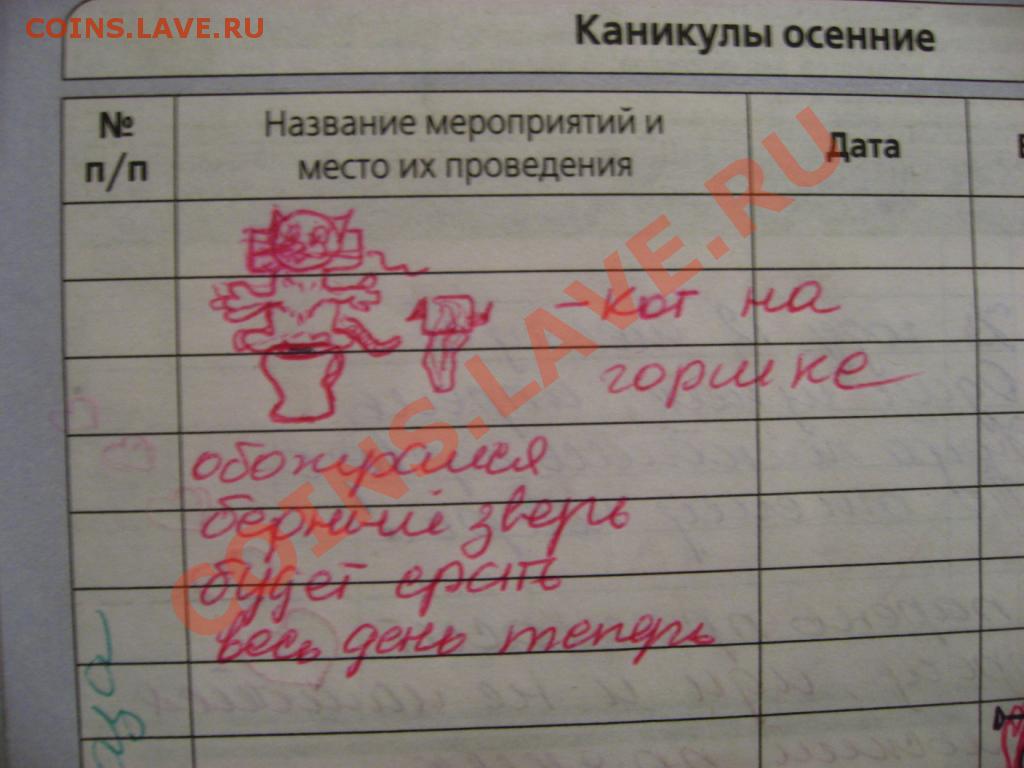 COINS.LAVE.RU
Каникулы осенние
№ п/п
Название мероприятий и
место их проведения
Дата
COINS.LAVE.RU
-кот на
горшке
обожрался
берный зверь
будет срать
весь день теперь